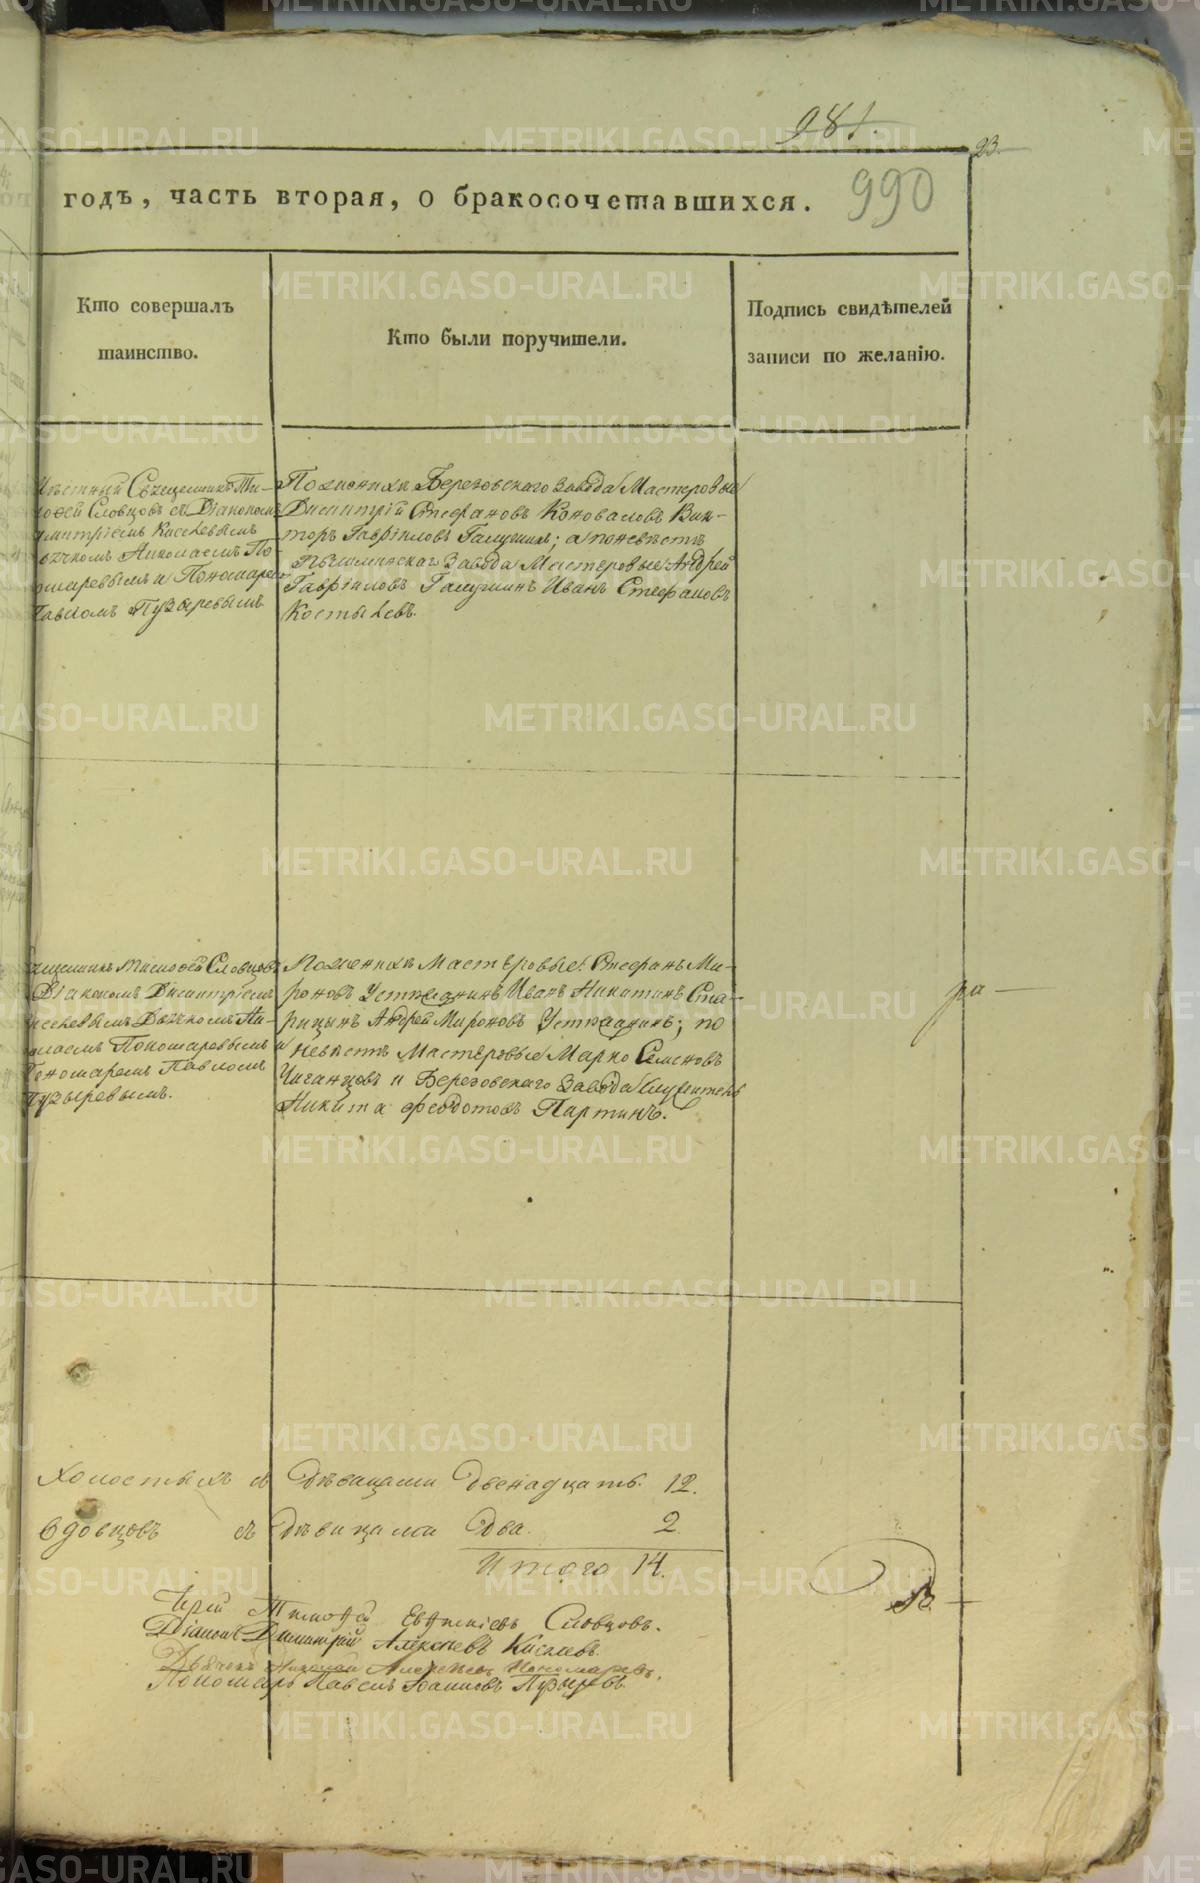 981.
23.
990
годъ, часть вторая, о бракосочетавшихся.
Кто совершалъ
таинство.
Кто были поручители.
Подпись свидѣтелей
записи по желанію.
Мѣстный Священникъ Ти-
моѳей Словцовъ съ Діакономъ
Димитріемъ Киселевымъ
Дьячкомъ Николаемъ По-
номаревымъ и Пономаремъ
Павломъ Пузыревымъ.
По женихѣ Березовскаго Завода Мастеровые
Димитрій Стефановъ Коноваловъ Вик-
торъ Гавріиловъ Галушинъ; а по невѣстѣ
Пышминскаго Завода Мастеровые Андрей
Гавріиловъ Галушинъ Иванъ Стефановъ
Костылевъ.
Священникъ Тимоѳей Словцовъ
Діакономъ Димитріемъ
Киселевымъ Дьячкомъ Ни-
колаемъ Пономаревымъ и
Пономаремъ Павломъ
Пузыревымъ.
По женихѣ Мастеровые: Стефанъ Ми-
роновъ Устюжанинъ Иванъ Никитинъ Ста-
рицынъ Андрей Мироновъ Устюжанинъ; по
невѣстѣ Мастеровые Марко Семеновъ
Чиганцовъ и Березовскаго Завода Служитель
Никита Ѳедотовъ Партинъ.
ра
Холостыхъ съ дѣвицами двенадцать. 12.
Вдовцовъ съ дѣвицами два. 2.
Итого 14.
Іерей Тимоѳей Евѳиміевъ Словцовъ.
Діаконъ Димитрій Алексѣевъ Киселевъ.
Дьячекъ Николай Андреевъ Пономаревъ.
Пономарь Павелъ Іоанновъ Пузыревъ.